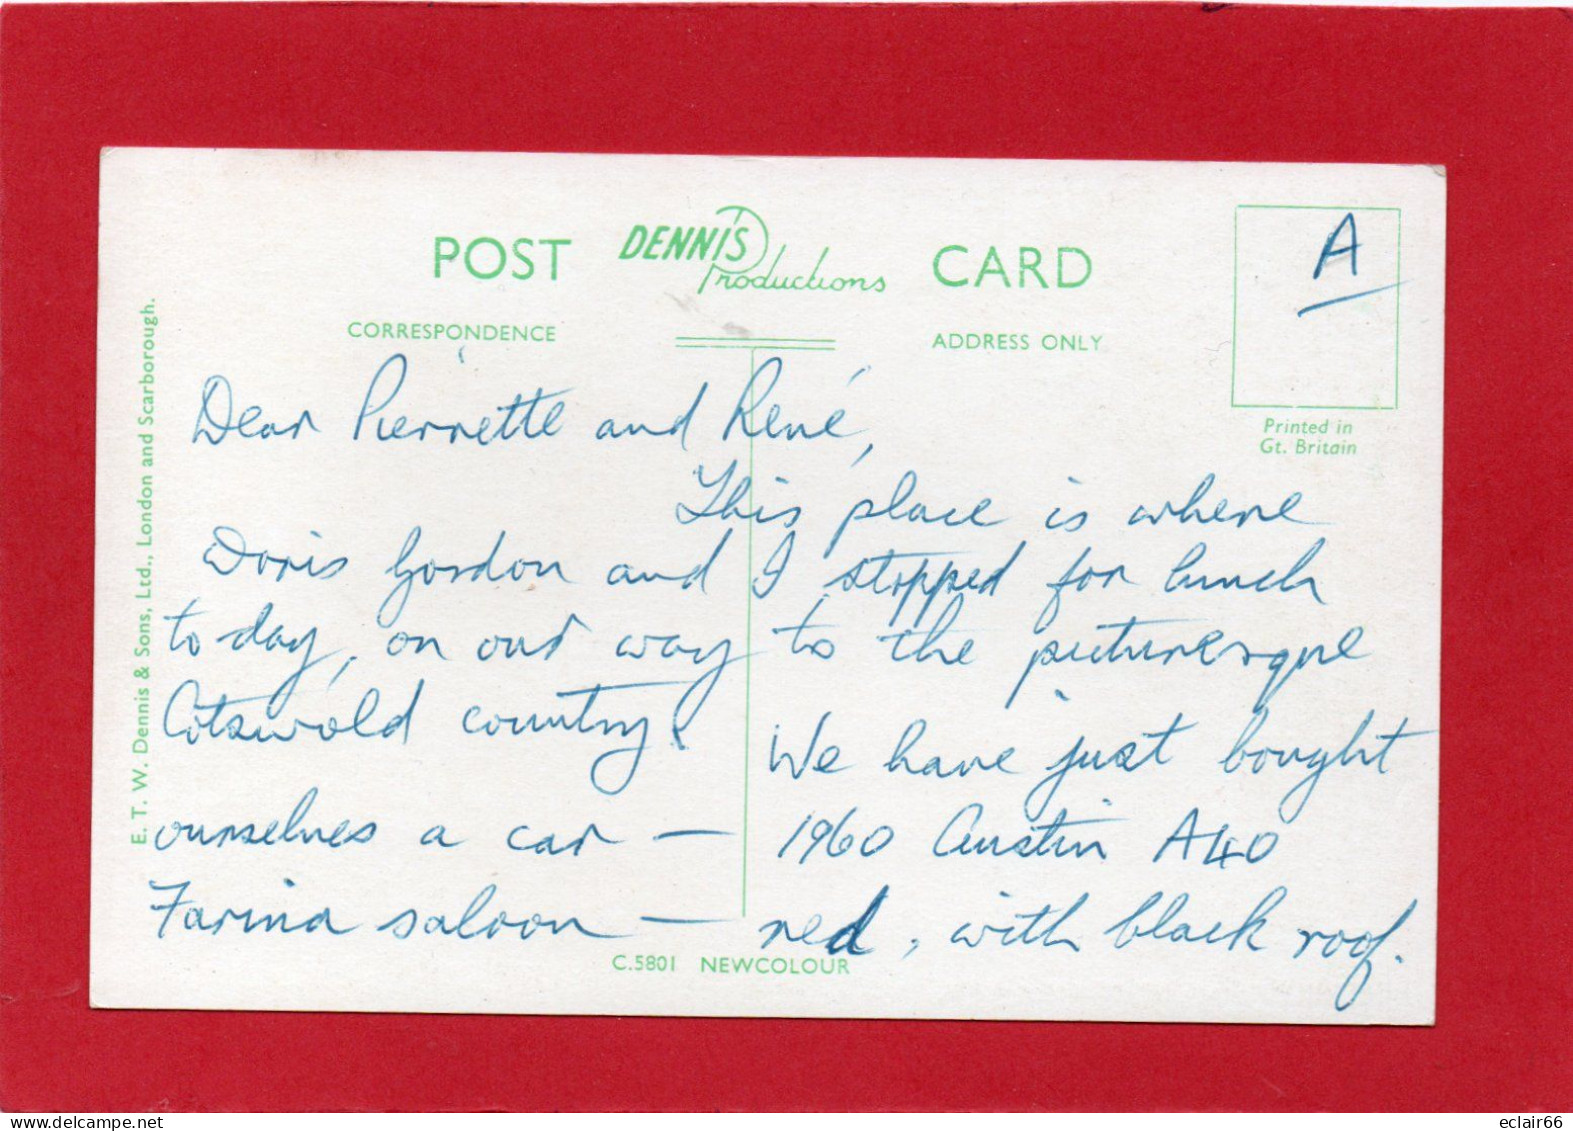 POST DENNIS Productions CARD
A
CORRESPONDENCE
ADDRESS ONLY
Printed in
Gt. Britain
E. T. W. Dennis & Sons, Ltd., London and Scarborough.
Dear Pierrette and René,
This place is where
Doris Gordon and I stopped for lunch
to-day, on our way to the picturesque
Cotswold country. We have just bought
ourselves a car — 1960 Austin A40
Farina saloon — red, with black roof.
C.5801 NEWCOLOUR
eclair66